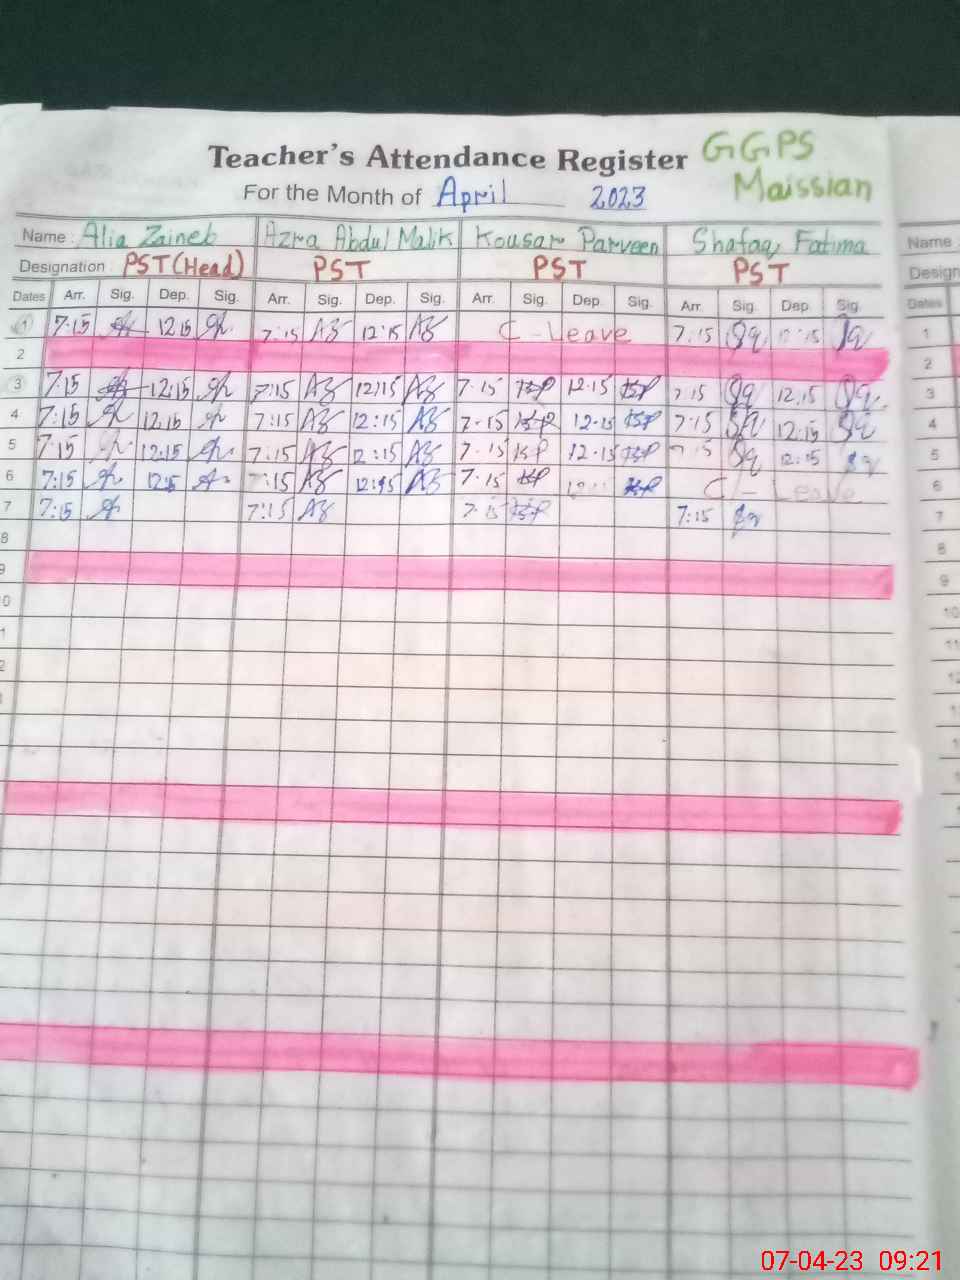 Teacher's Attendance Register GGPS
For the Month of April 2023 Maissian
Name: Alia Zaineb Azra Abdul Malik Kousar Parveen Shafaq Fatima Name
Designation: PST (Head) PST PST PST Design
Dates Arr. Sig. Dep. Sig. Arr. Sig. Dep. Sig. Arr. Sig. Dep. Sig. Arr. Sig. Dep. Sig. Dates
1 7:15 12:15 7:15 AZ 12:15 AZ C-Leave 7:15 Sq 12:15 Sq 1
2 2
3 7:15 12:15 7:15 AZ 12:15 AZ 7.15 KP 12.15 KP 7:15 Sq 12:15 Sq 3
4 7:15 12:15 7:15 AZ 12:15 AZ 7.15 KP 12.15 KP 7:15 Sq 12:15 Sq 4
5 7:15 12:15 7:15 AZ 12:15 AZ 7.15 KP 12.15 KP 7:15 Sq 12:15 Sq 5
6 7:15 7:15 AZ AZ 7.15 KP KP C-Leave 6
7 7:15 7:15 AZ 7.15 KP 7:15 Sq 7
8 8
9 9
10 10
11
12
07-04-23 09:21